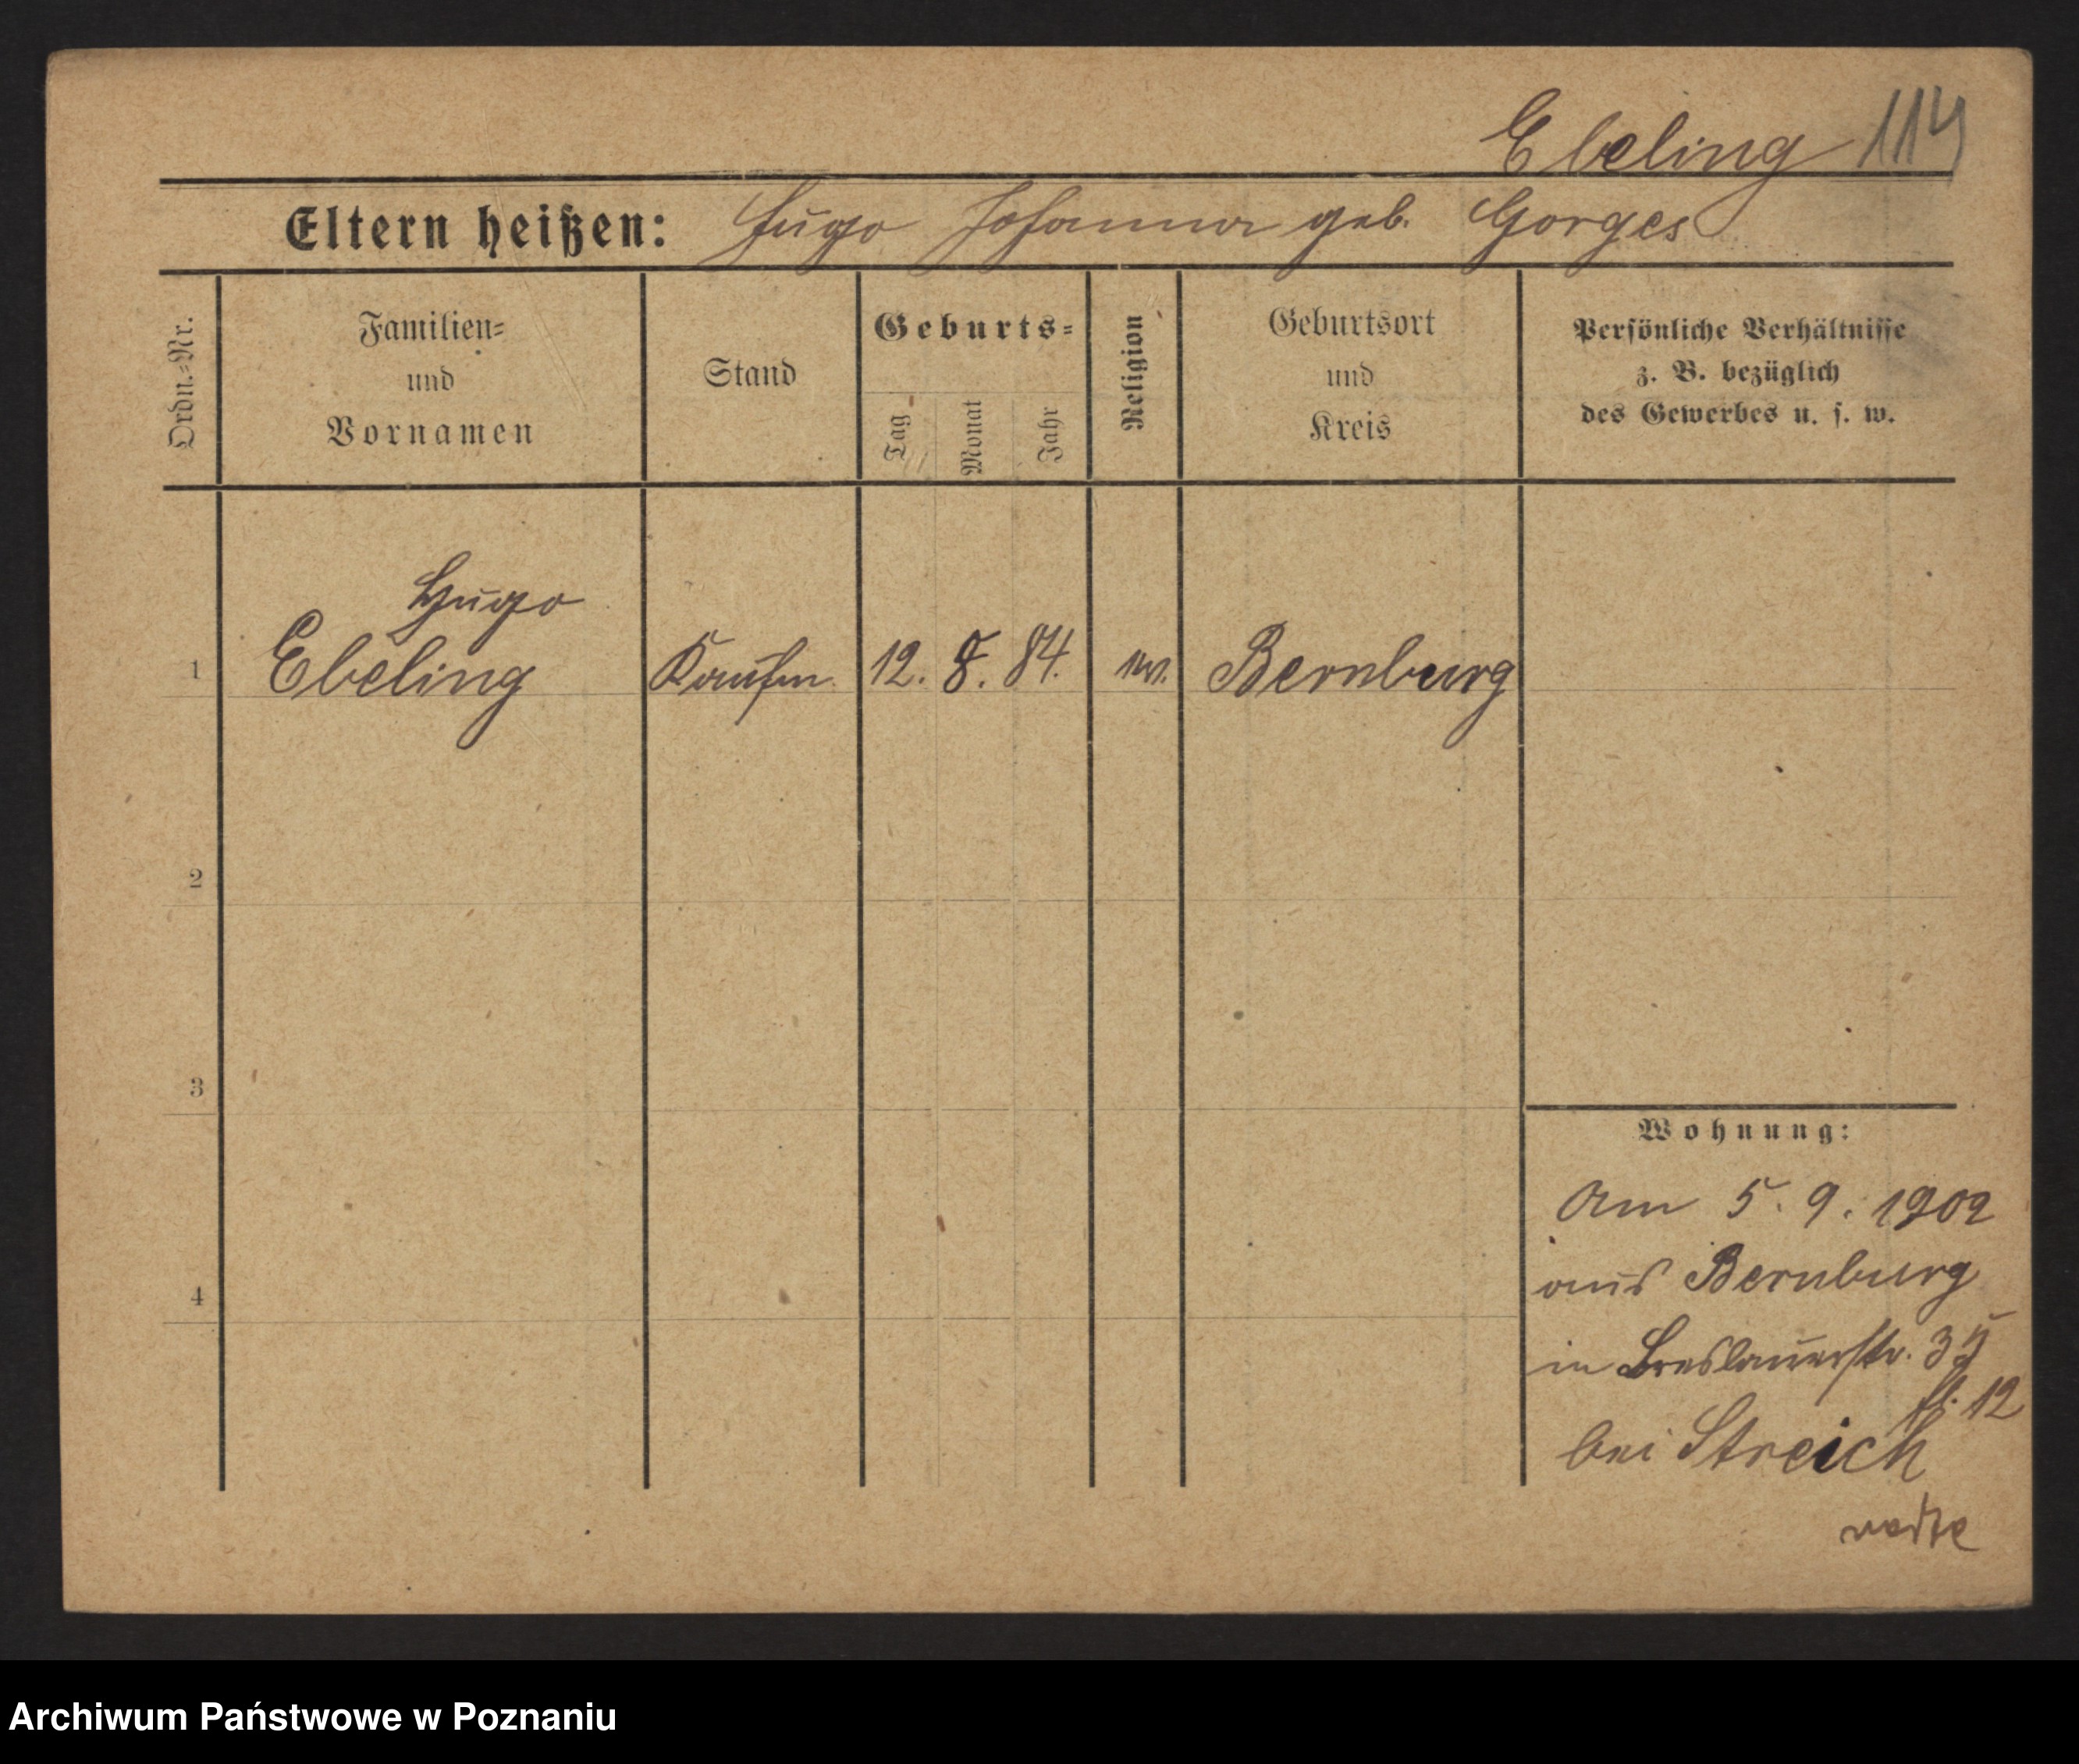 Ebeling 114
Eltern heißen: Hugo Johanna geb. Gorges
Ordn.=Nr.
Familien=
und
Vornamen
Stand
Geburts=
Tag
Monat
Jahr
Religion
Geburtsort
und
Kreis
Persönliche Verhältnisse
z. B. bezüglich
des Gewerbes u. s. w.
Hugo
1 Ebeling Kaufm. 12. 8. 84. ev. Bernburg
2
3
4
Wohnung:
Am 5. 9. 1902
aus Bernburg
in Breslauerstr.
12
bei Streich
Archiwum Państwowe w Poznaniu